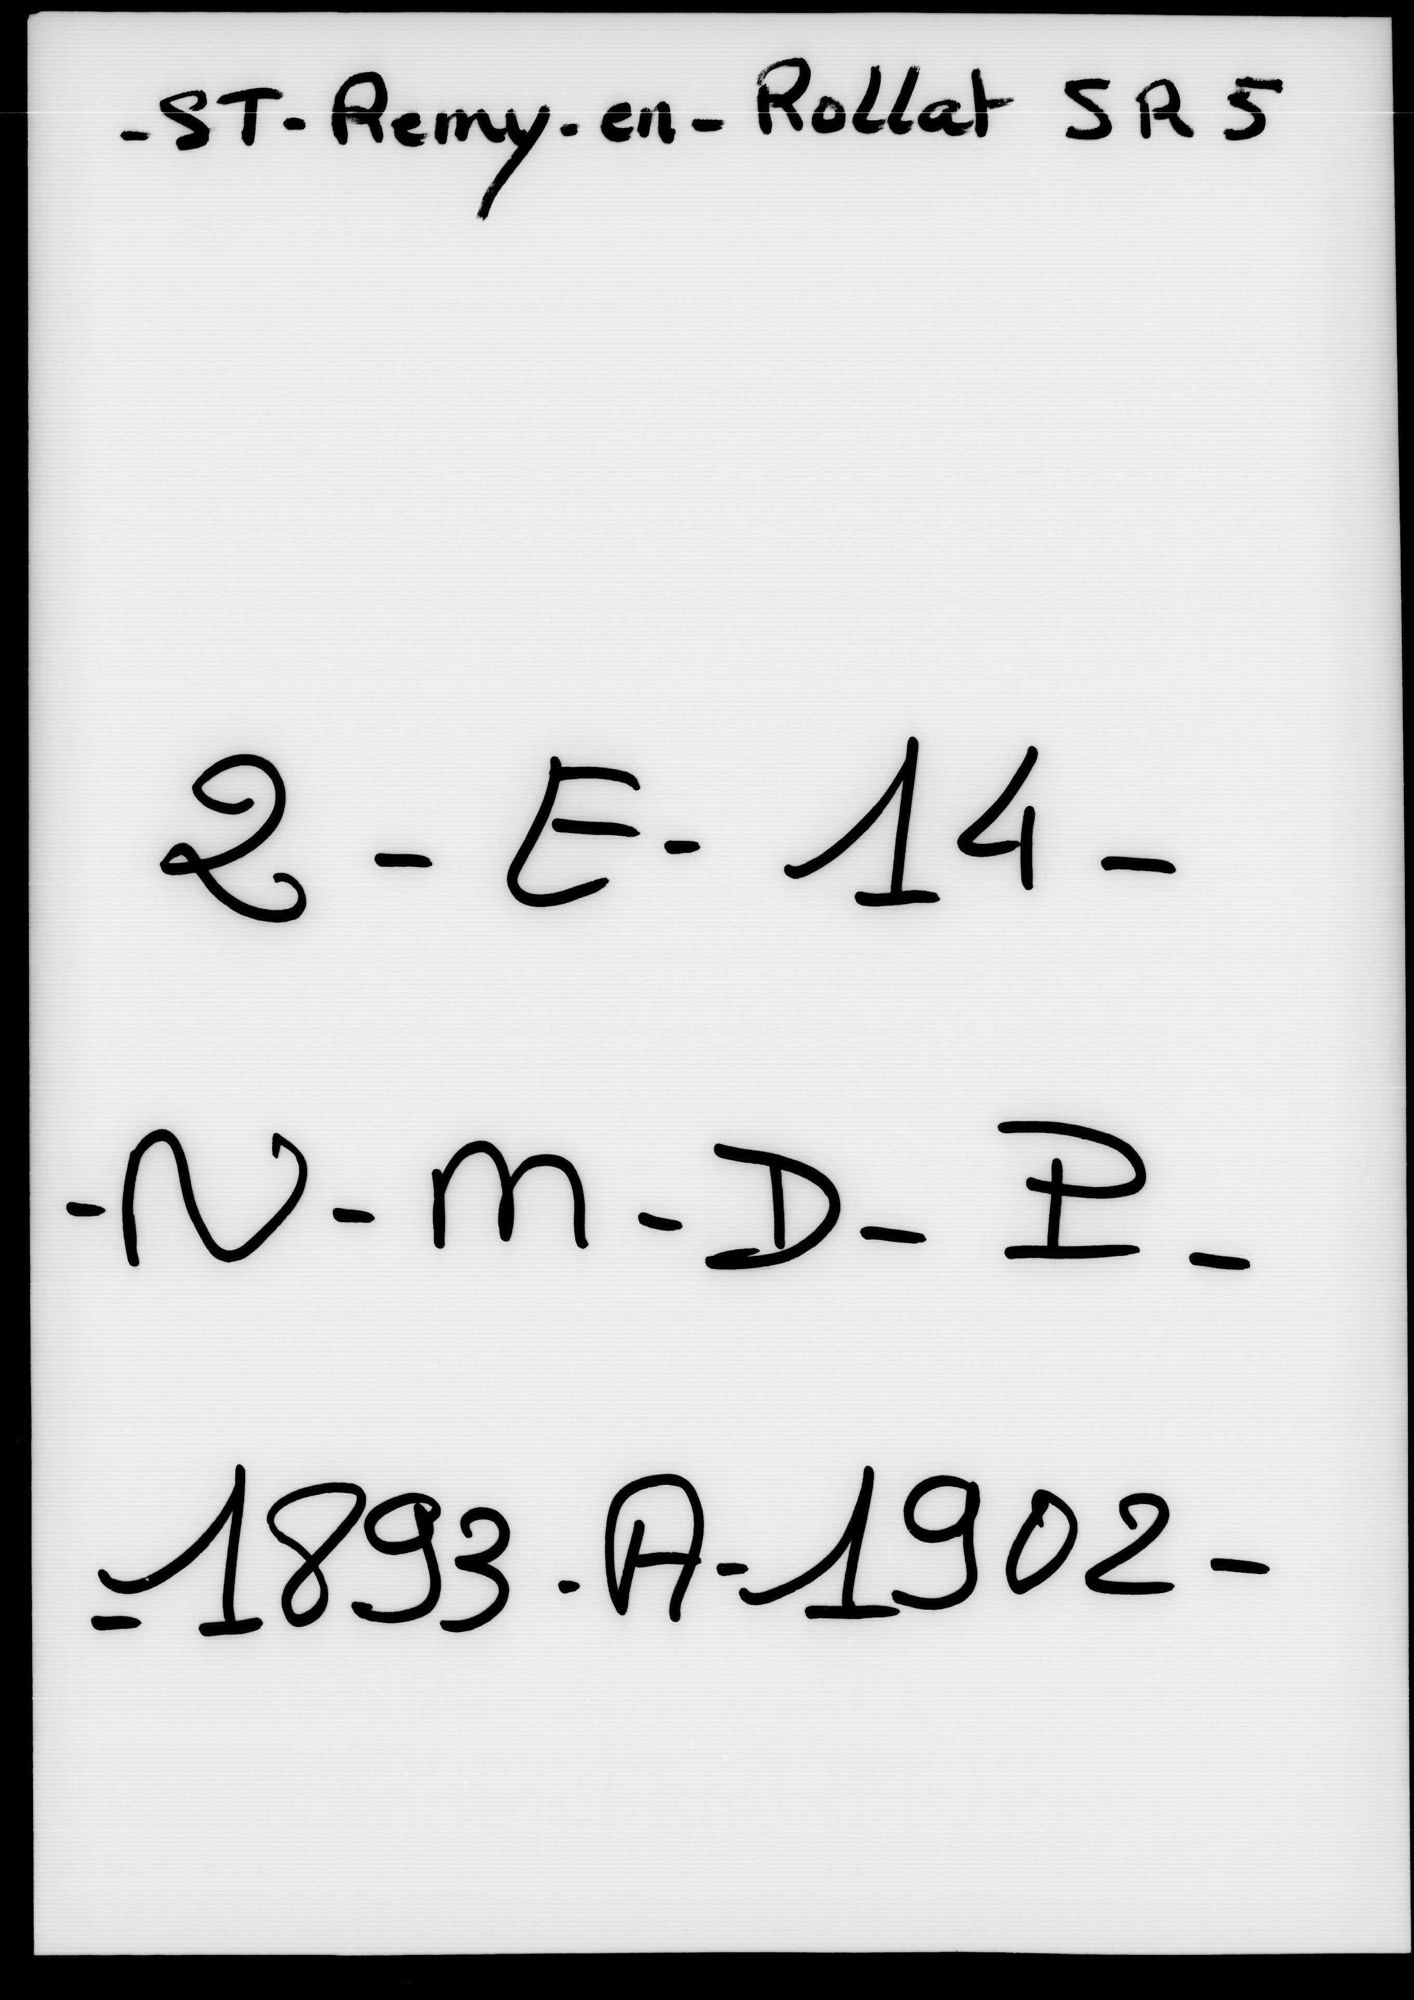 -ST-Remy-en-Rollat SR5
2-E-14-
-N-M-D-P-
-1893-A-1902-